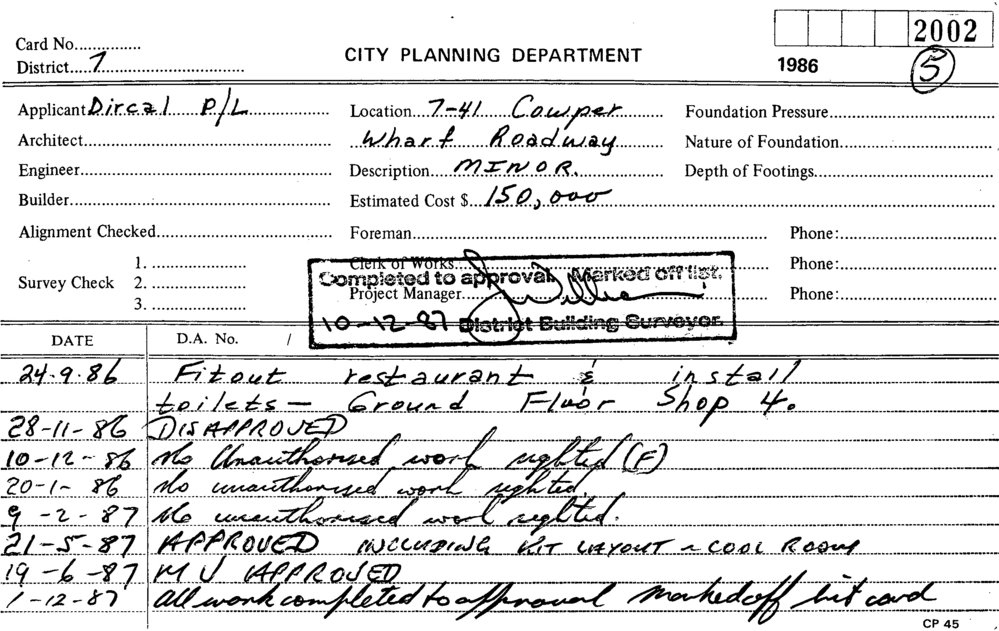 2002
Card No.
District 7
CITY PLANNING DEPARTMENT
1986
5
Applicant Dircal P/L
Location 7-41 Cowper
Foundation Pressure
Architect
Wharf Roadway
Nature of Foundation
Engineer
Description MINOR.
Depth of Footings
Builder
Estimated Cost $ 150,000
Alignment Checked
Foreman
Phone:
Survey Check
1.
2.
3.
Clerk of Works
Phone:
Project Manager
Phone:
Completed to approval. Marked off list.
10-12-87 District Building Surveyor.
DATE
D.A. No. /
24.9.86 Fitout restaurant & install
toilets - Ground Floor Shop 4.
28-11-86 DISAPPROVED
10-12-86 No Unauthorised work sighted (F)
20-1-86 No unauthorised work sighted
9-2-87 No unauthorised work sighted.
21-5-87 APPROVED INCLUDING KIT LAYOUT ~ COOL ROOM
19-6-87 M V APPROVED
1-12-87 all work completed to approval marked off list card
CP 45